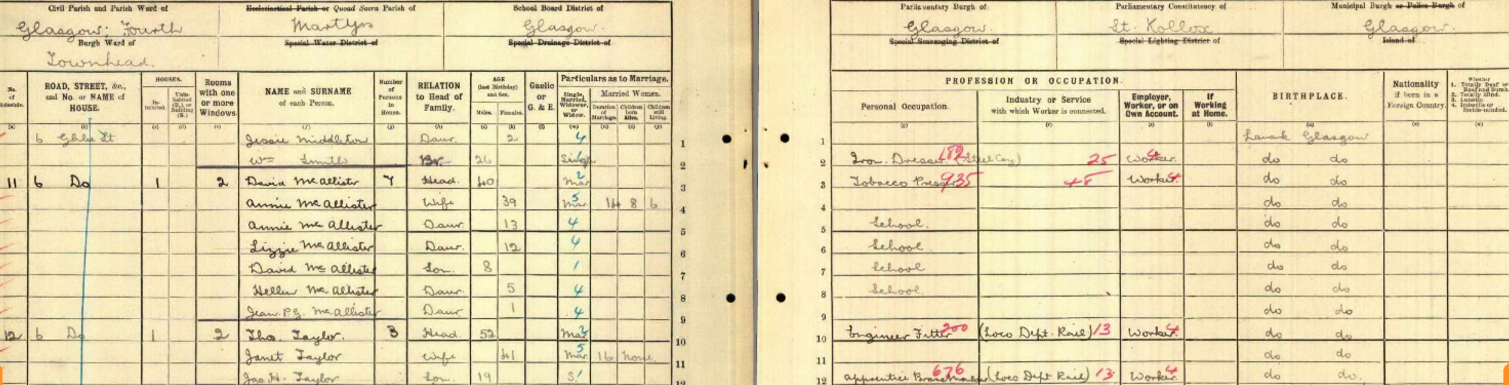 Civil Parish and Parish Ward of
Glasgow; Fourth
Burgh Ward of
Townhead.
Ecclesiastical Parish or Quoad Sacra Parish of
Martyrs
Special Water District of
School Board District of
Glasgow.
Special Drainage District of
Parliamentary Burgh of
Glasgow.
Special Scavenging District of
Parliamentary Constituency of
St. Rollox
Special Lighting District of
Municipal Burgh or Police Burgh of
Glasgow.
Island of
No. of Schedule.
ROAD, STREET, &c., and No. or NAME of HOUSE.
HOUSES.
Rooms with one or more Windows.
NAME and SURNAME of each Person.
Number of Persons in House.
RELATION to Head of Family.
AGE (last Birthday) and Sex.
Males. Females.
Gaelic or G. & E.
Particulars as to Marriage.
Single, Married, Widower, or Widow.
Married Women.
Duration of Marriage. Children born Alive. Children still Living.
PROFESSION OR OCCUPATION.
Personal Occupation.
Industry or Service with which Worker is connected.
Employer, Worker, or on Own Account.
If Working at Home.
BIRTHPLACE.
Nationality if born in a Foreign Country.
Whether 1. Totally Deaf or Deaf and Dumb. 2. Totally Blind. 3. Lunatic. 4. Imbecile or feeble-minded.
6 St. Jessie Middleton Daur. 2 4 1 1 Lanark Glasgow
Wm Smith Br. 26 Sing 2 2 Iron Dresser 182 (Steel Coy) 25 Worker 4 do do
11 6 Do 1 2 David McAllister 7 Head 40 Mar 2 3 3 Tobacco Presser 935 48 Worker 4 do do
Annie McAllister Wife 39 Mar 5 14 8 6 4 4 do do
Annie McAllister Daur. 13 4 5 5 School. do do
Lizzie McAllister Daur. 12 4 6 6 School. do do
David McAllister Son. 8 1 7 7 School do do
Hellen McAllister Daur. 5 4 8 8 School. do do
Jean P.G. McAllister Daur 1 4 9 9 do do
12 6 Do 1 2 Tho. Taylor. 3 Head 52 Mar 2 10 10 Engineer Fitter 200 (Loco Dept. Rail) 13 Worker 4 do do
Janet Taylor Wife 41 Mar 5 16 None. 11 11 do do
Jas. H. Taylor Son. 19 S 1 12 12 apprentice 676 (Loco Dept Rail) 13 Worker 4 do do.